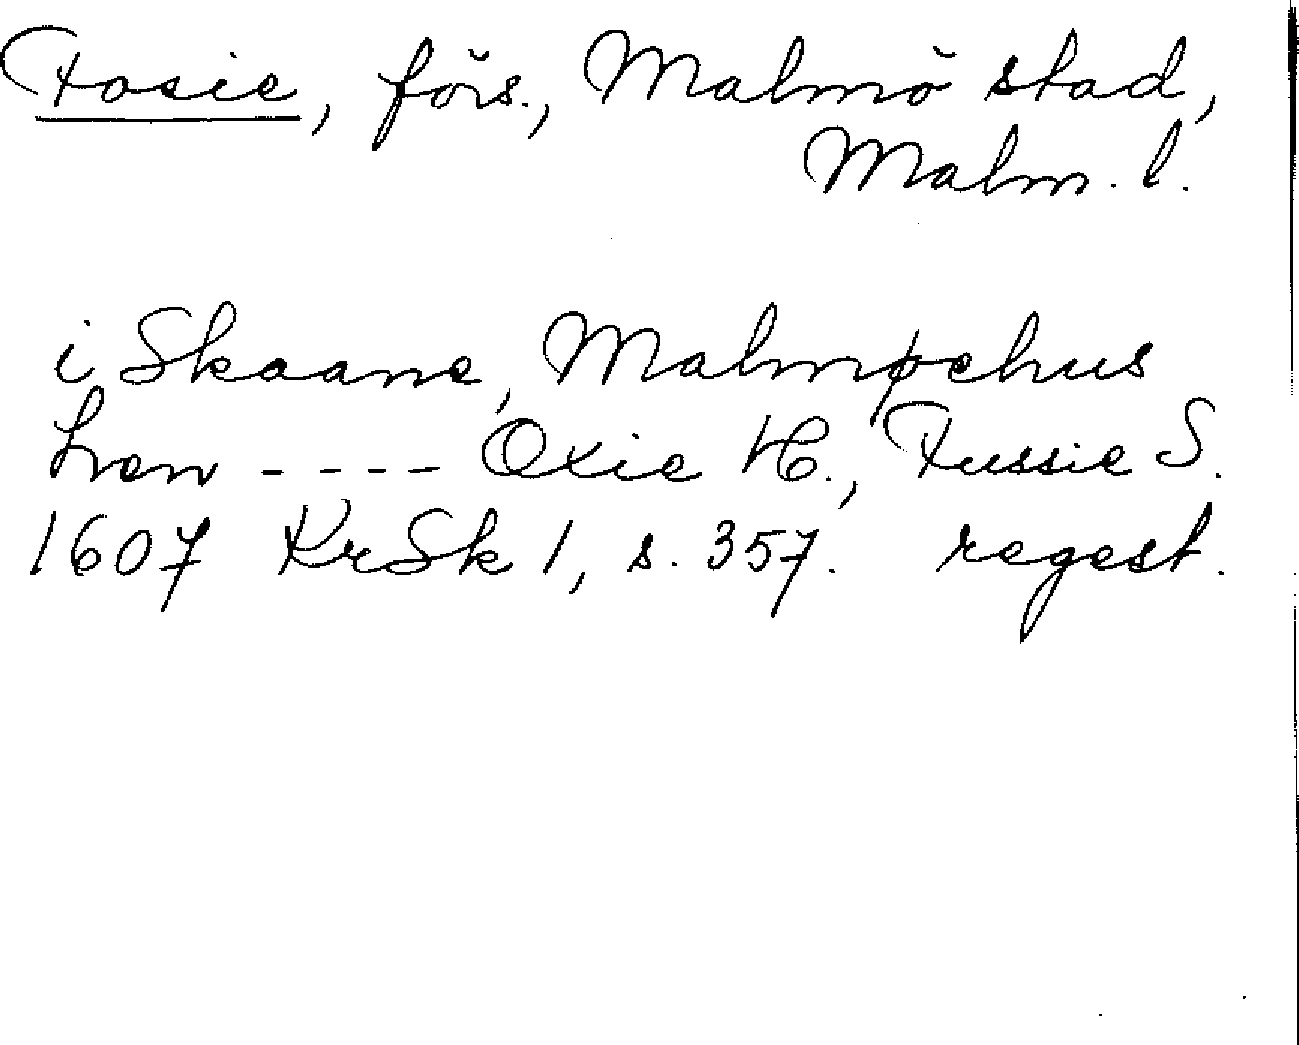 Fosie, förs., Malmö stad,
Malm. l.
i Skaane, Malmøehus
Læn - - - - Oxie H., Fussie S.
1607 KrSk 1, s. 357. regest.